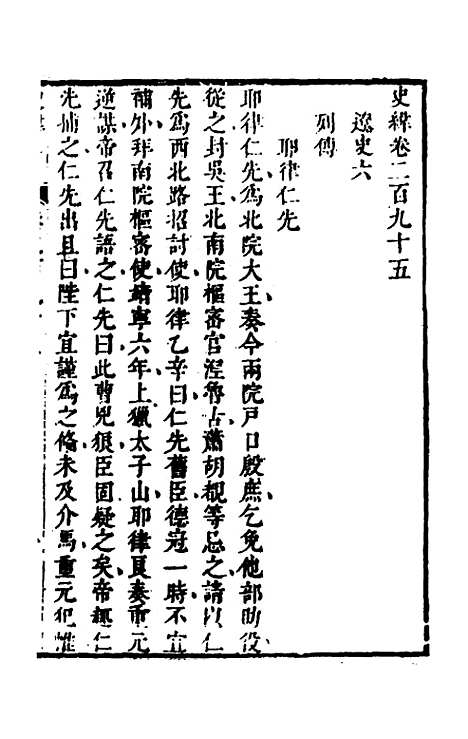 史緯卷二百九十五
遼史六
列傳
耶律仁先
耶律仁先爲北院大王奏今兩院戸口殷庶乞免他部助役
從之封吳王北南院樞密官涅魯古蕭胡覩等忌之請以仁
先爲西北路招討使耶律乙辛曰仁先舊臣德冠一時不宜
補外拜南院樞密使清寧六年上獵太子山耶律良奏重元
逆謀帝召仁先語之仁先曰此曹兇狠臣固疑之矣帝趣仁
先捕之仁先出且曰陛下宜謹爲之備未及介馬重元犯帷